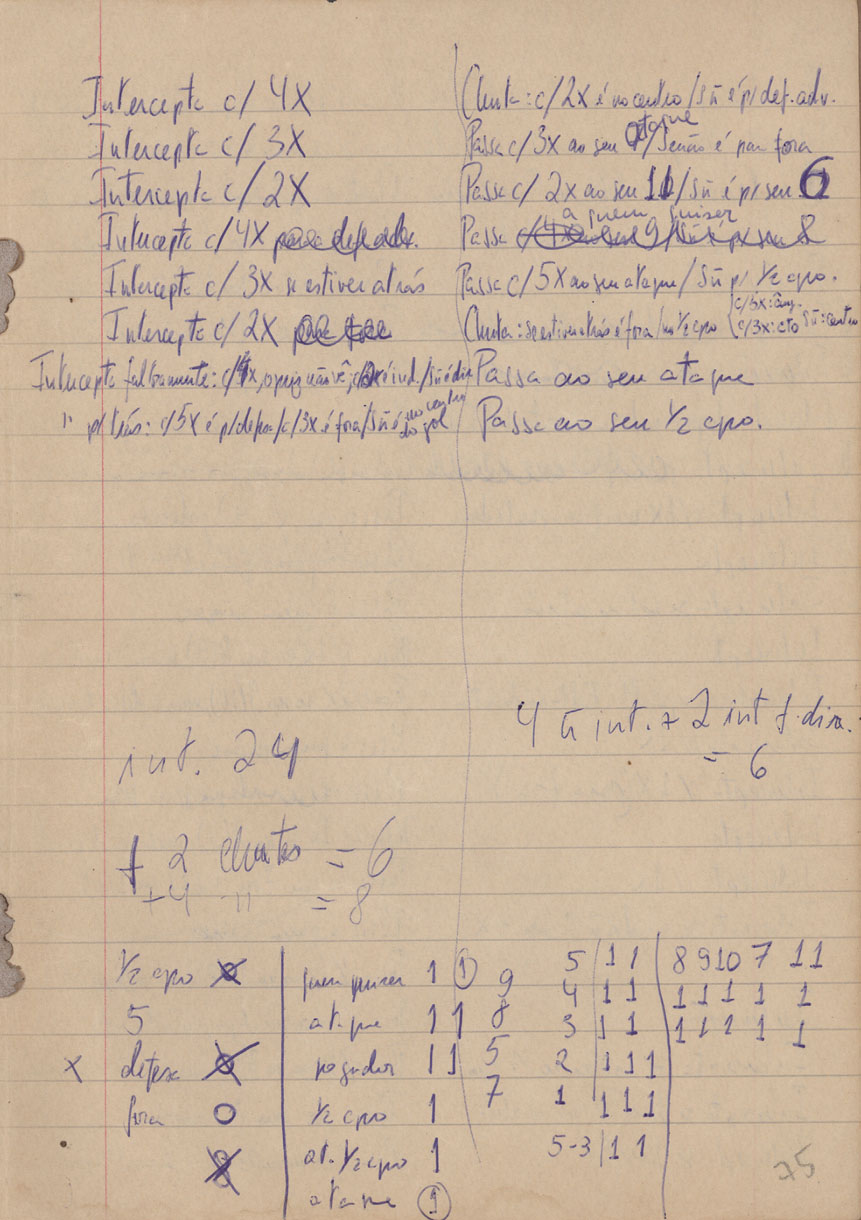 Intercepta c/ 4X
Intercepta c/ 3X
Intercepta c/ 2X
Intercepta c/ 4X
Intercepta c/ 3X se estiver atrás
Intercepta c/ 2X
Intercepta falhamente: c/ 4x, o juiz não vê; é ind./sñ é dir
" p/ trás: c/ 5X é p/ defesa/c/ 3X é fora/sñ é no centro do gol
Chuta: c/ 2X é no centro/sñ é p/ def. adv.
Passa c/ 3X ao seu ataque/senão é para fora
Passa c/ 2X ao seu 11/sñ é p/ seu 6
Passa a quem quiser
Passa c/ 5X ao seu ataque/sñ p/ 1/2 cpo.
Chuta: se estiver atrás é fora/no 1/2 cpo c/ 3x: cto sñ: centro
Passa ao seu ataque
Passa ao seu 1/2 cpo.
4 ñ int. + 2 int f. dira.
= 6
int. 24
+ 2 chutes = 6
+4 " = 8
1/2 cpo
5
x defesa
fora O
quem quiser 1 1
ataque 1 1
jogador 1 1
1/2 cpo 1
at. 1/2 cpo 1
ataque 1
9
8
5
7
5 1 1
4 1 1
3 1 1
2 1 1 1
1 1 1 1
5-3 1 1
8 9 10 7 11
1 1 1 1 1
1 1 1 1 1
75